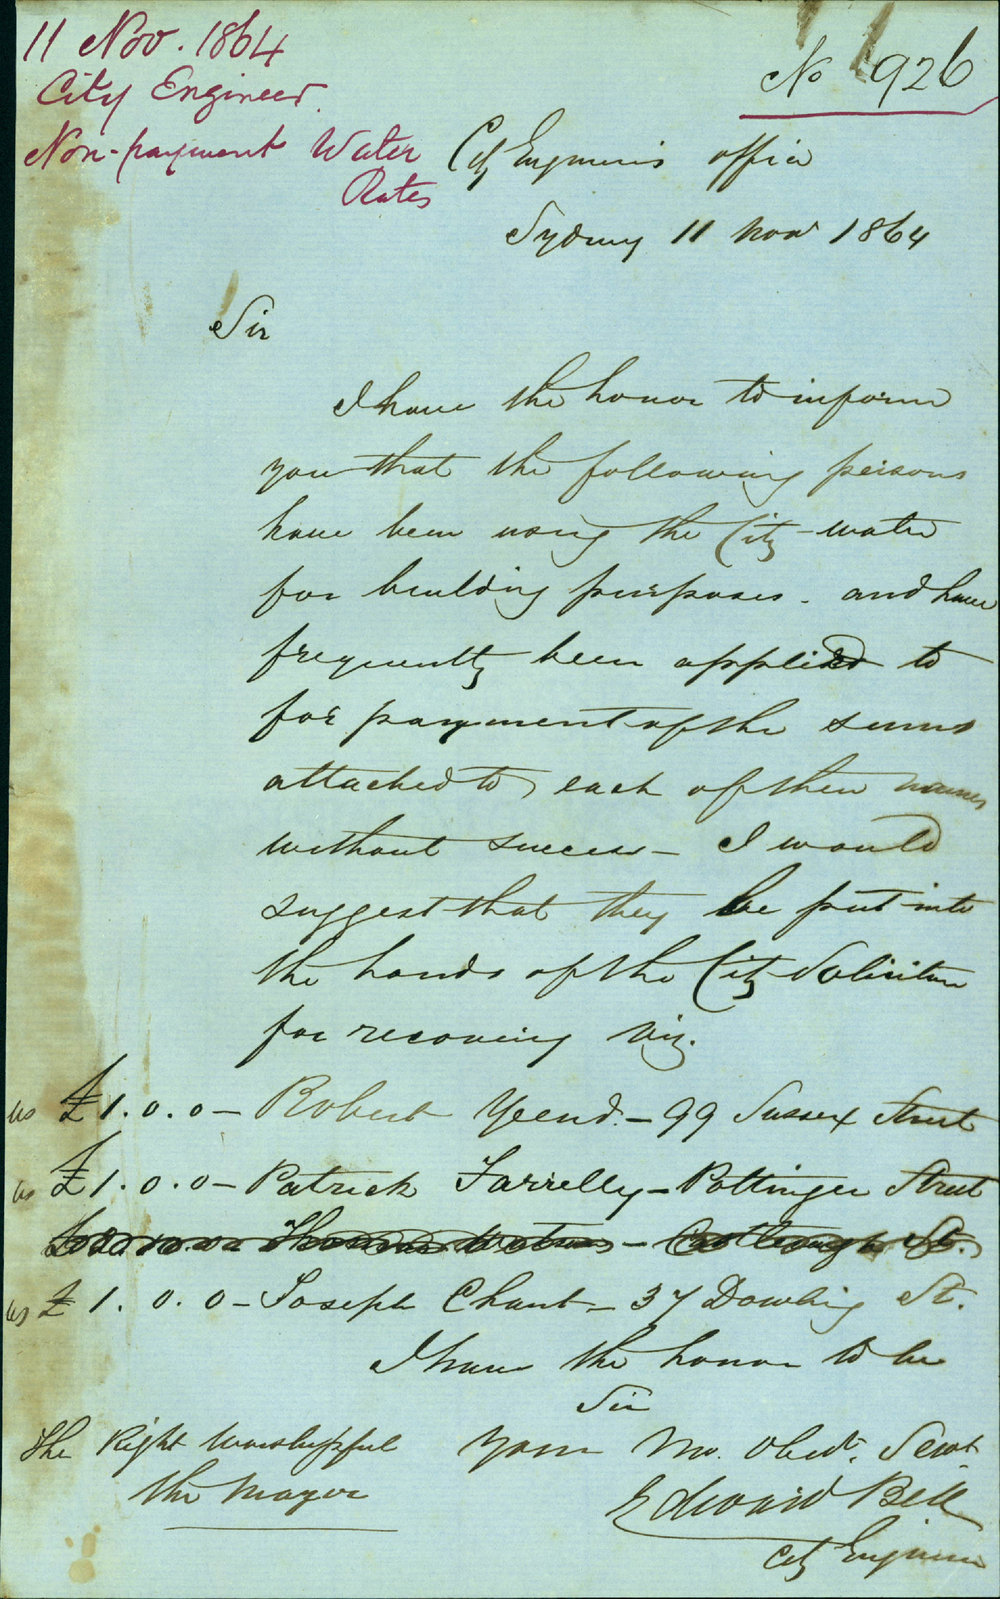 11 Nov. 1864
City Engineer.
Non-payment Water
Rates
No 926
City Engineer's office
Sydney 11 Nov 1864
Sir
I have the honor to inform
you that the following persons
have been using the City water
for building purposes - and have
frequently been applied to
for payment of the sums
attached to each of their names
without success - I would
suggest that they be put into
the hands of the City Solicitor
for recovering viz.
£1.0.0 - Robert Yeend. - 99 Sussex Street
£1.0.0 - Patrick Farrelly - Pottinger Street
Thomas Watson - St.
£1.0.0 - Joseph Chant - 37 Dowling St.
I have the honor to be
Sir
Your Mo. Obedt. Servt
The Right Worshipful
the Mayor
Edward Bell
City Engineer